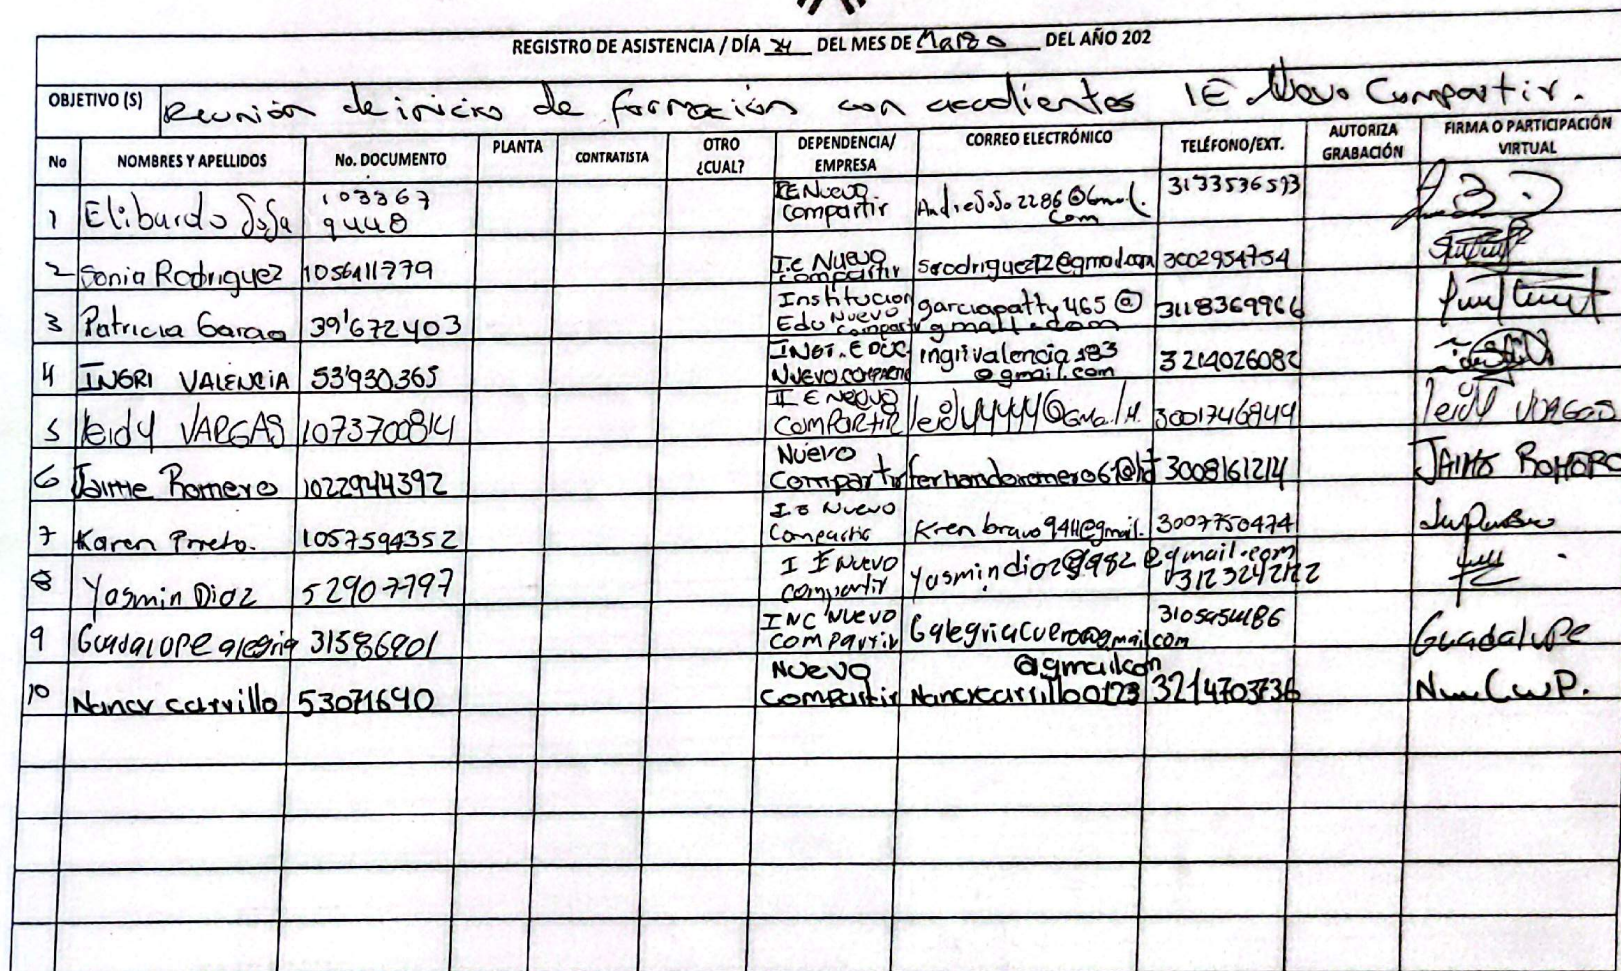 REGISTRO DE ASISTENCIA / DÍA 24 DEL MES DE Marzo DEL AÑO 202
OBJETIVO (S) Reunión de inicio de formación con acudientes IE Nuevo Compartir.
No NOMBRES Y APELLIDOS No. DOCUMENTO PLANTA CONTRATISTA OTRO ¿CUAL? DEPENDENCIA/ EMPRESA CORREO ELECTRÓNICO TELÉFONO/EXT. AUTORIZA GRABACIÓN FIRMA O PARTICIPACIÓN VIRTUAL
1 Eliburdo Sosa 103367 9448 IE Nuevo compartir 3133536593
2 Sonia Rodriguez 1056411779 I.e Nuevo compartir Srodriguez72@gmail.com 3002954754
3 Patricia Garcia 39'672403 Institucion Edu Nuevo compartir garciapatty465@ gmail.com 3118369966
4 INGRI VALENCIA 53'930365 INST. EDUC NUEVO COMPARTIR ingrivalencia183 @gmail.com 3214026082
5 leidy VARGAS 1073700814 I E NUEVO COMPARTIR 3001746844 leidy VARGAS
6 Jaime Romero 1022944392 Nuevo Compartir fernandoromero61@hot 3008161214 JAIME ROMERO
7 Karen Prieto. 1057594352 I E Nuevo Compartir Krenbravo94@gmail. 3007750474
8 Yasmin Diaz 52907797 I E Nuevo compartir Yasmindiaz@982@gmail.com 3123242122
9 Guadalupe alegria 31586901 INC NUEVO COMPARTIR Galegriacuero@gmail.com 3105454186 Guadalupe
10 Nancy carrillo 53071690 NUEVO COMPARTIR Nancycarrillo0123 @gmailcon 3214703736